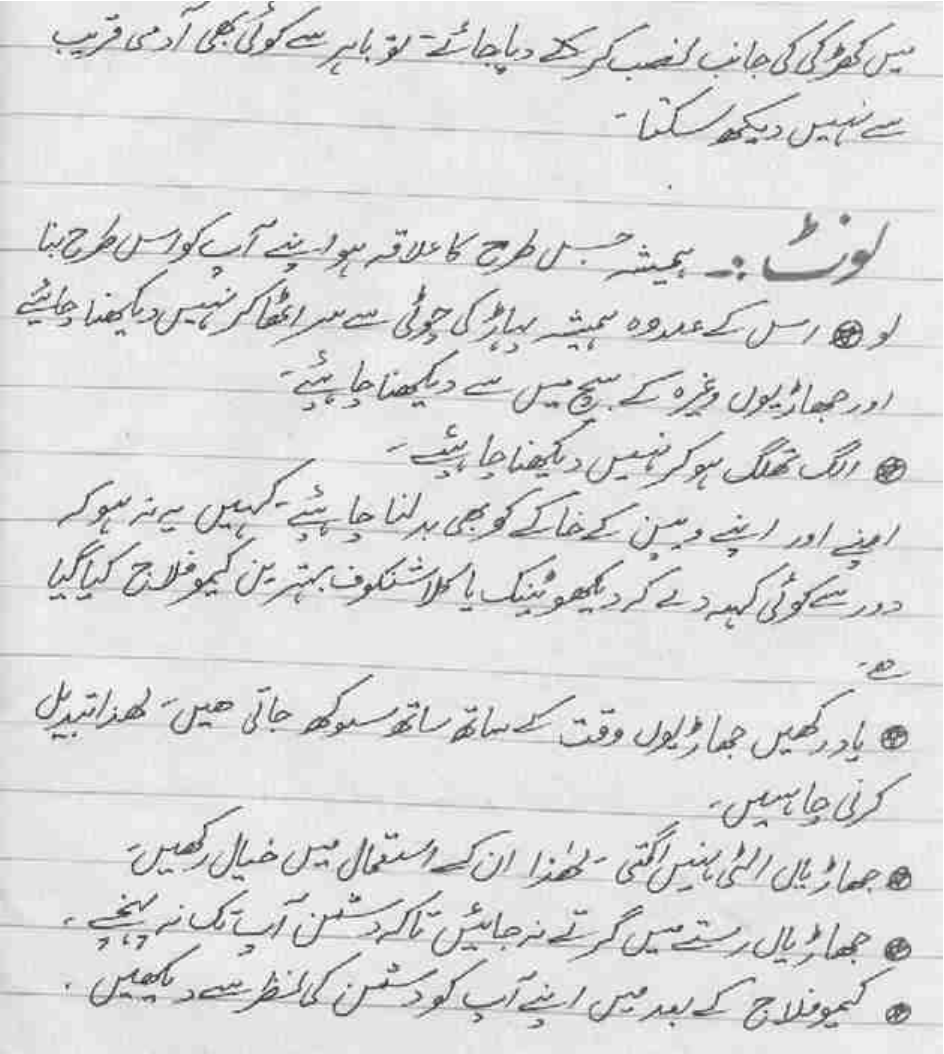 میں کھڑکی کی جانب نصب کر کے دیا جائے۔ تو باہر سے کوئی بھی آدمی قریب
سے نہیں دیکھ سکتا۔
نوٹ :۔ ہمیشہ جس طرح کا علاقہ ہو اپنے آپ کو اس طرح بنا
لو ● اس کے علاوہ ہمیشہ پہاڑ کی چوٹی سے سر اٹھا کر نہیں دیکھنا چاہئیے
اور جھاڑیوں وغیرہ کے بیچ میں سے دیکھنا چاہئیے۔
● الگ تھلگ ہو کر نہیں دیکھنا چاہئیے ۔
اپنے اور اپنے ویپن کے خاکے کو بھی بدلنا چاہئیے۔ کہیں یہ نہ ہو کہ
دور سے کوئی کہہ دے کر دیکھو ٹینک یا کلاشنکوف بہترین کیموفلاج کیا گیا
ھے۔
● یاد رکھیں جھاڑیوں وقت کے ساتھ ساتھ سوکھ جاتی ھیں۔ لھذا تبدیل
کرنی چاہییں۔
● جھاڑیاں الٹی نہیں اگتی ۔ لھٰذا ان کے استعمال میں خیال رکھیں۔
● جھاڑیاں رستے میں گرتے نہ جائیں تاکہ دشمن آپ تک نہ پہنچے ۔
● کیموفلاج کے بعد میں اپنے آپ کو دشمن کی نظر سے دیکھیں ۔